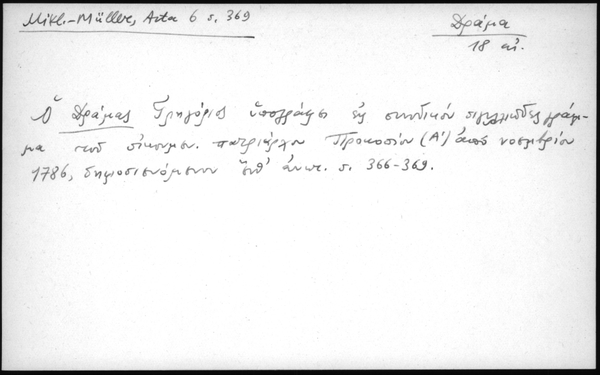 Mikl.-Müller, Acta 6 s. 369
Δράμα
18 αἰ.
Ὁ Δράμας Γρηγόριος ὑπογράφει εἰς συνοδικόν σιγιλλιῶδες γράμ-
μα τοῦ οἰκουμεν. πατριάρχου Προκοπίου (Α') ἀπό νοεμβρίου
1786, δημοσιευόμενον ἔνθ' ἀνωτ. s. 366-369.